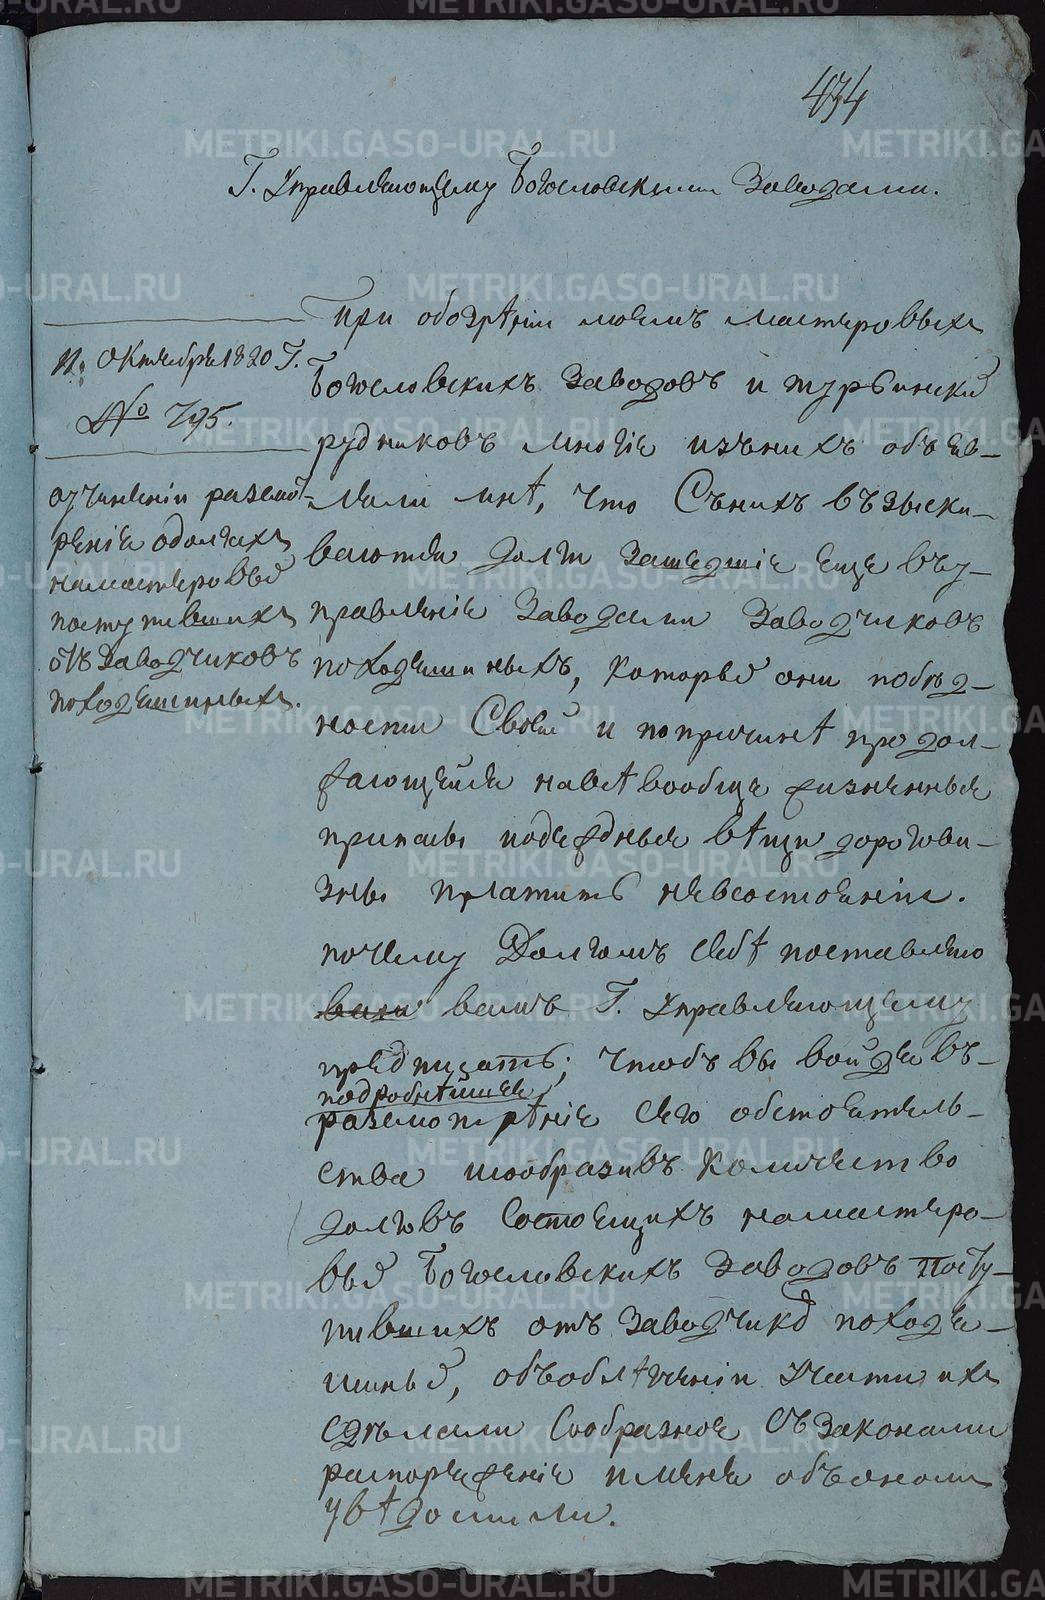 434
Г. Управляющему Богословскими Заводами.
11. Октября 1820 Г.
№ 795.
о учинении разсмот-
рения о долгах
на мастеровых
поступивших
отъ Заводчиковъ
походяшиных.
При обозрѣнии моемъ мастеровых
Богословскихъ Заводовъ и турьинских
рудниковъ многие изъ них объяв-
ляли мнѣ, что Съ нихъ възыски-
ваются долги зашедшие еще въ у-
правление Заводами Заводчиковъ
походяшиныхъ, которые они по бѣд-
ности Своей и по причинѣ продол-
жающейся на всѣ вообще жизненные
припасы и одеждные вѣщи дорогови-
зны платить не в состоянии.
почему Долгомъ себѣ поставляю
вамъ Г. Управляющему
предписать; Чтобъ вы войдя въ
подробнѣйшее
разсмотрѣние сего обстоятель-
ства и сообразивъ Количество
долговъ Состоящихъ на мастеро-
вых Богословскихъ Заводовъ Посту-
пивших отъ Заводчиков походя-
шиных, объ облѣгчении Участи их
сдѣлали Сообразное Съ Законами
распоряжение и меня объ оном
увѣдомили.
METRIKI.GASO-URAL.RU